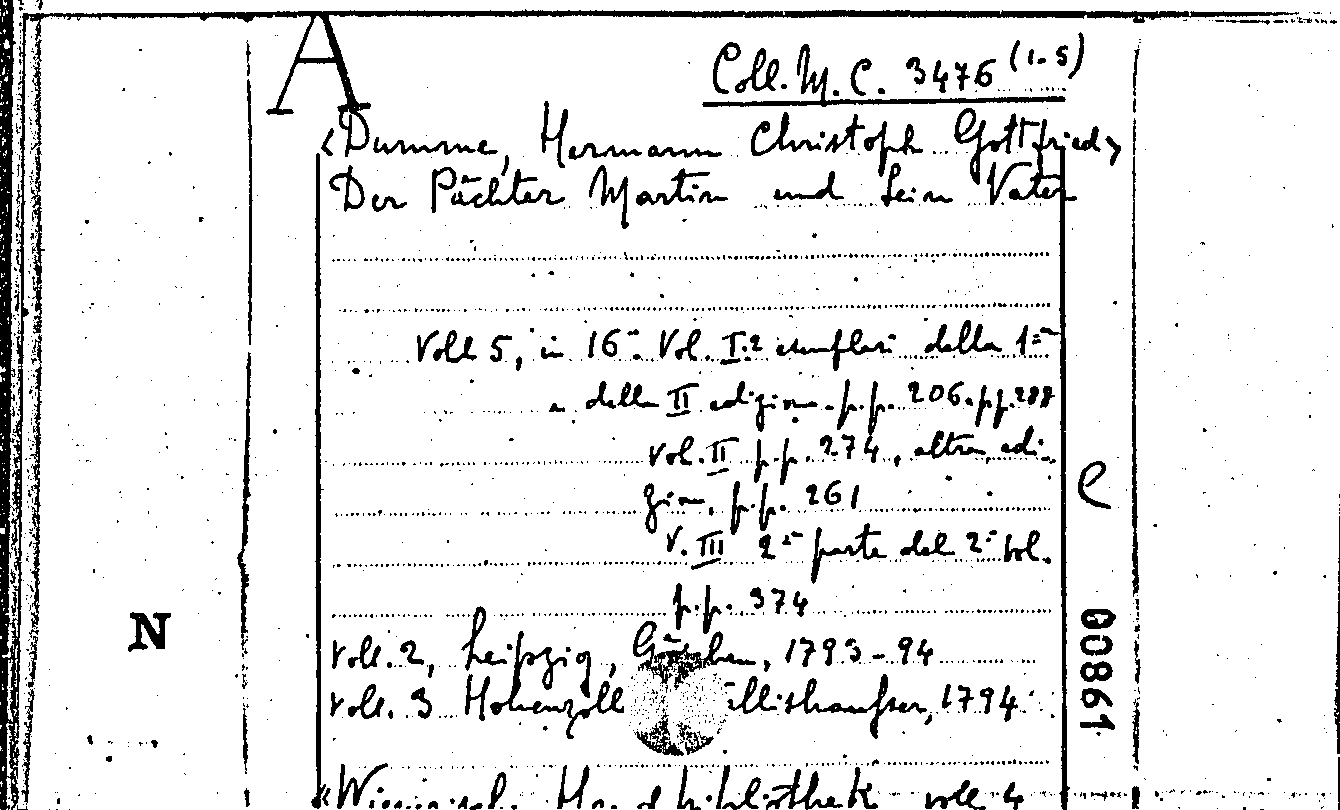 A
Coll. M. C. 3476 (1-5)
<Dumme, Hermann Christoph Gottfried>
Der Pächter Martin und sein Vater
Voll 5, in 16°. Vol. I. 2 esemplari della 1ª
e della II edizione. p.p. 206. p.p. 288
vol. II p.p. 274, altra edi-
zione, p.p. 261
V. III 2ª parte del 2° vol.
p.p. 374
e
N
voll. 2, Leipzig, 1793-94
voll. 3 1794
00861
voll. 4